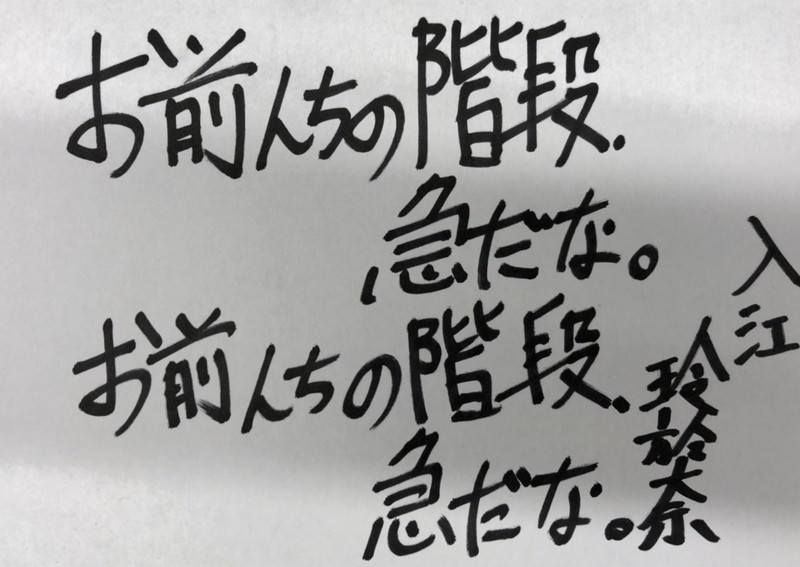 お前んちの階段.
急だな。
お前んちの階段.
急だな。
入江
玲於奈